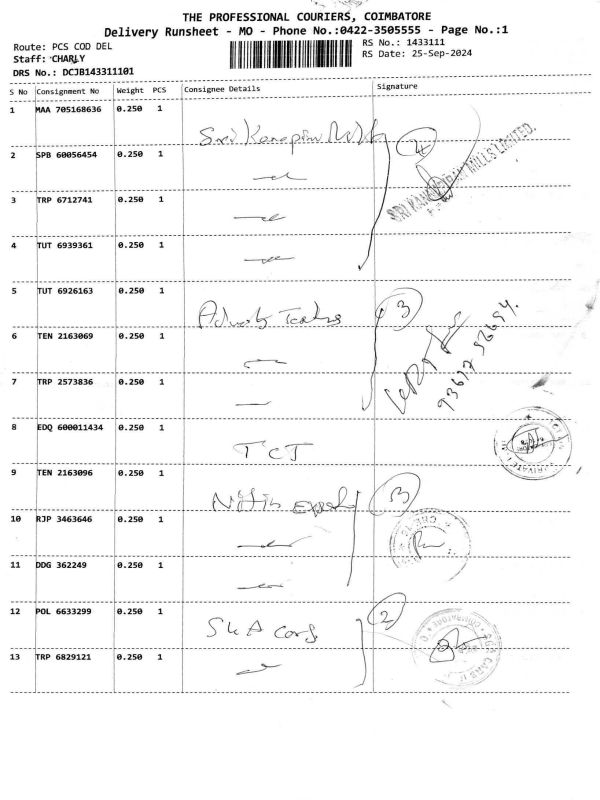 THE PROFESSIONAL COURIERS, COIMBATORE
Delivery Runsheet - MO - Phone No.:0422-3505555 - Page No.:1
Route: PCS COD DEL
RS No.: 1433111
Staff: CHARLY
RS Date: 25-Sep-2024
DRS No.: DCJB143311101
S No Consignment No Weight PCS Consignee Details Signature
1 MAA 705168636 0.250 1
Sri 4
2 SPB 60056454 0.250 1
MILLS LIMITED.
3 TRP 6712741 0.250 1
4 TUT 6939361 0.250 1
5 TUT 6926163 0.250 1
3
6 TEN 2163069 0.250 1
7 TRP 2573836 0.250 1
8 EDQ 600011434 0.250 1
TCT
9 TEN 2163096 0.250 1
Nitin 3
10 RJP 3463646 0.250 1
11 DDG 362249 0.250 1
12 POL 6633299 0.250 1
SKA 2
13 TRP 6829121 0.250 1